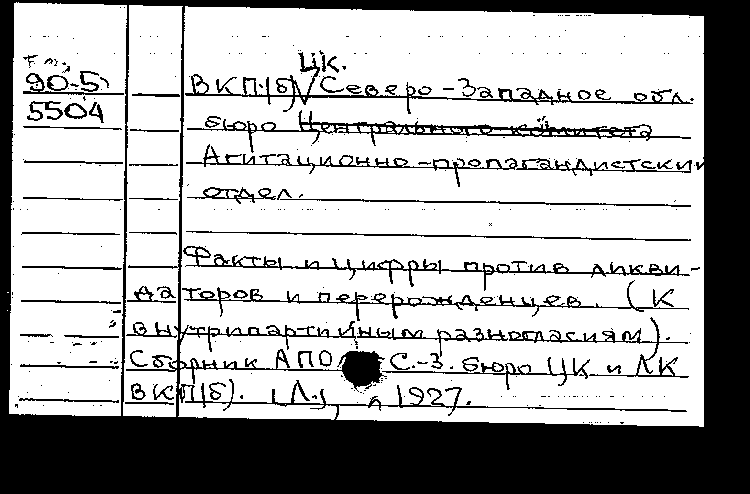 ЦК.
90-5
5504
ВКП(б) Северо-Западное обл.
бюро Центрального комитета
Агитационно-пропагандистский
отдел.
Факты и цифры против ликви-
даторов и перерожденцев. (К
внутрипартийным разногласиям).
Сборник АПО С.-З. бюро ЦК и ЛК
ВКП(б). [Л.], 1927.